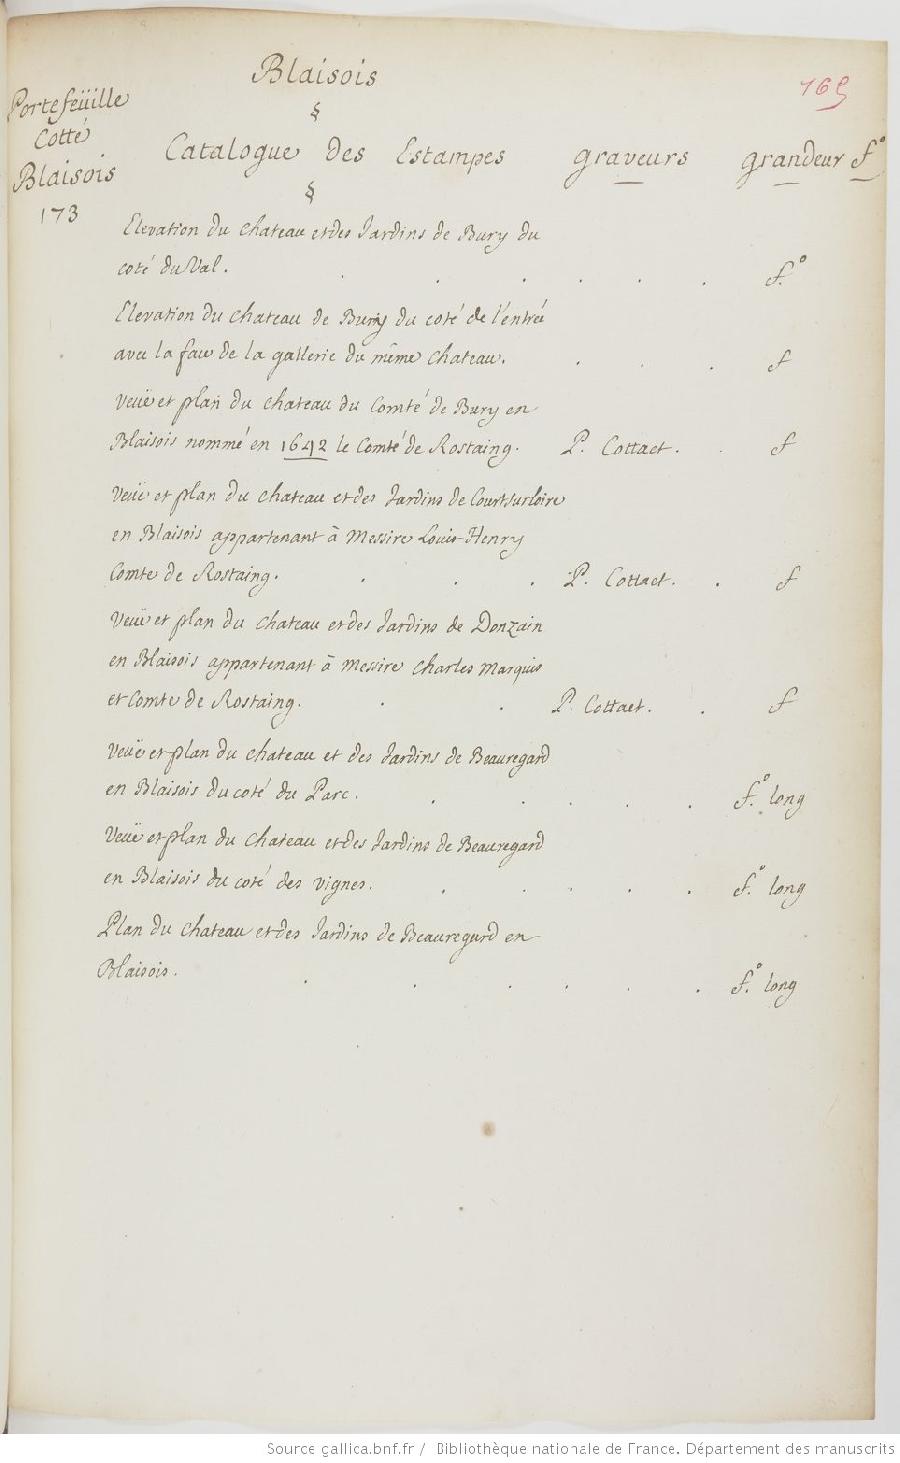 Blaisois
165
Portefeüille
Cotté
Blaisois
173
§
Catalogue des Estampes graveurs grandeur f.º
§
Elevation du chateau et des Jardins de Bury du
coté du Val. . . . . . . f.º
Elevation du chateau de Bury du coté de l'entré
avec la face de la gallerie du même chateau. . . . f
Veuë et plan du chateau du Comté de Bury en
Blaisois nommé en 1642 le Comté de Rostaing. P. Cottaet. . f
Veuë et plan du chateau et des Jardins de Court sur loire
en Blaisois appartenant à Messire Louis-Henry
Comte de Rostaing. . . . P. Cottaet. . f
Veuë et plan du chateau et des Jardins de Donzain
en Blaisois appartenant à Messire Charles Marquis
et Comte de Rostaing. . . P. Cottaet. . f
Veuë et plan du chateau et des Jardins de Beauregard
en Blaisois du coté du Parc. . . . . . f.º long
Veuë et plan du chateau et des Jardins de Beauregard
en Blaisois du coté des vignes. . . . . . f.º long
Plan du chateau et des Jardins de Beauregard en
Blaisois. . . . . . . f.º long
Source gallica.bnf.fr / Bibliothèque nationale de France. Département des manuscrits